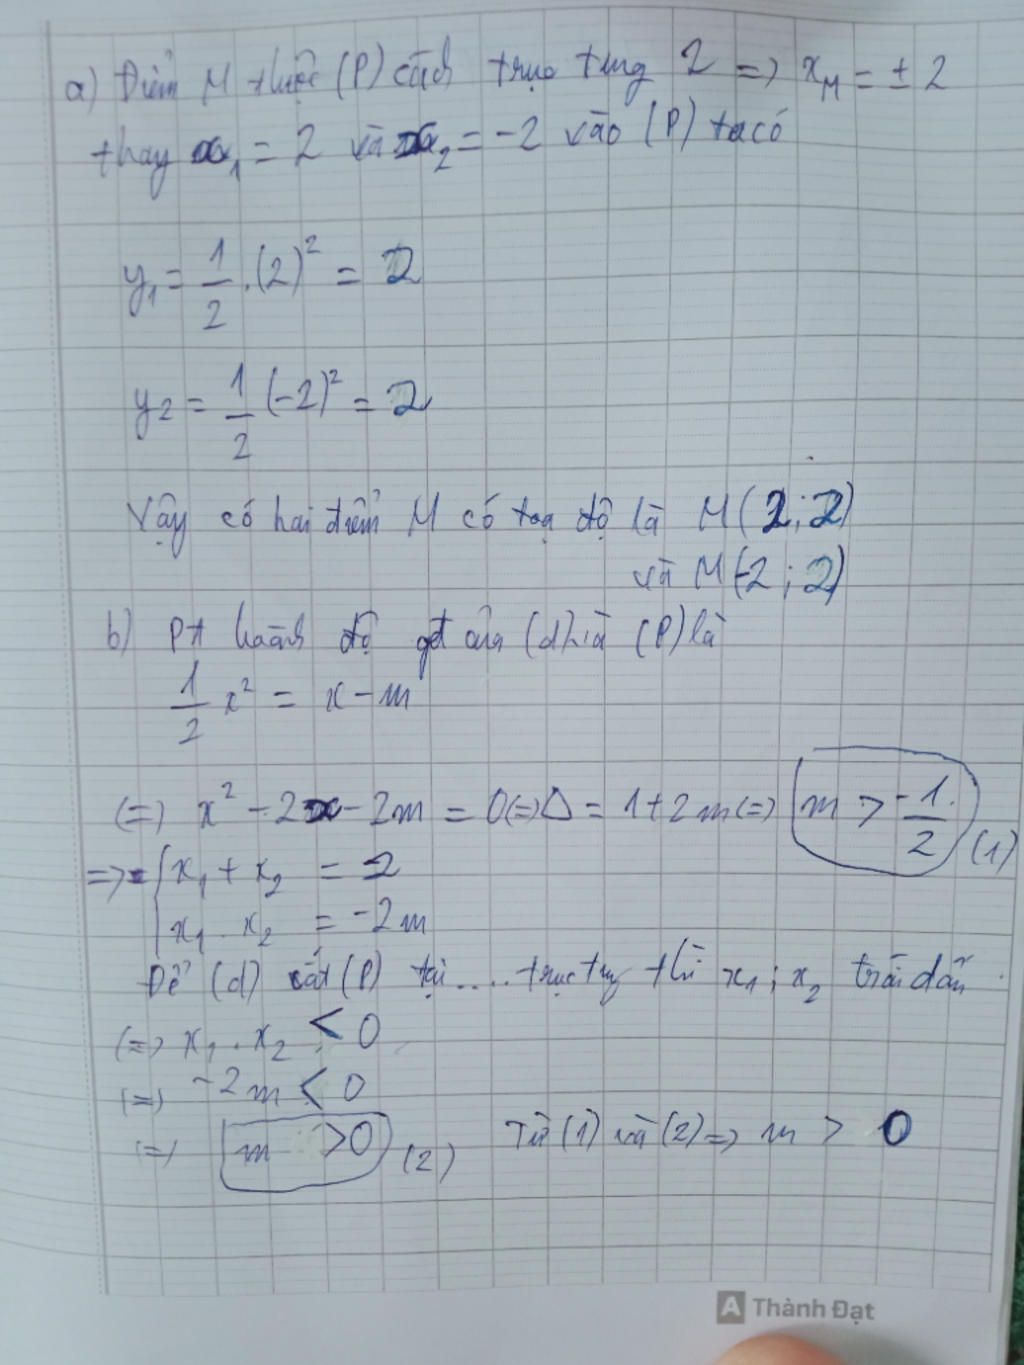 a) Điểm M thuộc (P) cách trục tung 2 => x_M = ± 2
thay x₁ = 2 và x₂ = -2 vào (P) ta có
y₁ = 1/2 . (2)² = 2
y₂ = 1/2 (-2)² = 2
Vậy có hai điểm M có toạ độ là M(2; 2)
và M(-2; 2)
b) Pt hoành độ gđ của (d) và (P) là
1/2 x² = x - m
(=) x² - 2x - 2m = 0 (=) Δ = 1 + 2m (=) m > -1/2 (1)
=> { x₁ + x₂ = 2
x₁ . x₂ = -2m
Để (d) cắt (P) tại .... trục tung thì x₁ ; x₂ trái dấu
(=) x₁ . x₂ < 0
(=) -2m < 0
(=) m > 0 (2) Từ (1) và (2) => m > 0
A Thành Đạt